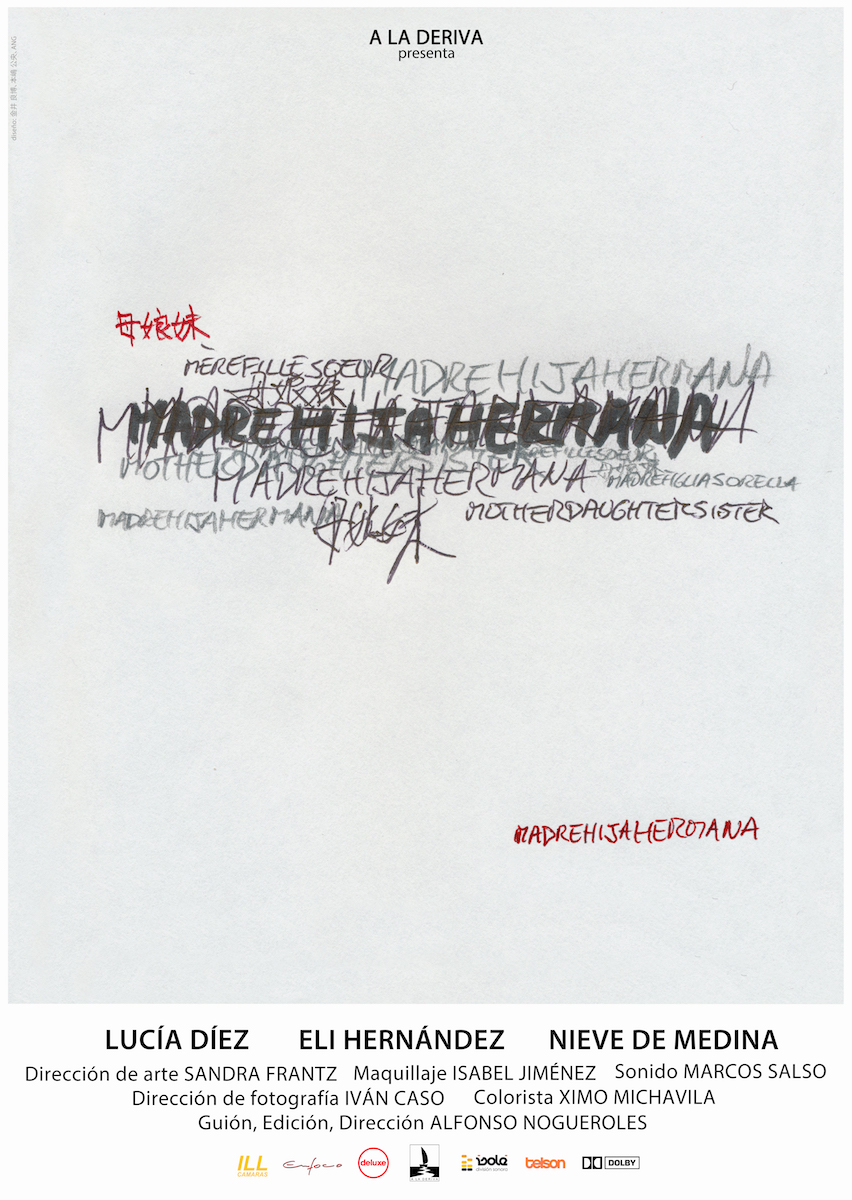 A LA DERIVA
presenta
母娘妹
MÈREFILLESOEUR
MADREHIJAHERMANA
母娘妹
MADREHIJAHERMANA
MOTHERDAUGHTERSISTER
MADREFIGLIASORELLA
MADREHIJAHERMANA
MADREHIJAHERMANA
MOTHERDAUGHTERSISTER
母娘妹
MADREHIJAHERMANA
LUCÍA DÍEZ ELI HERNÁNDEZ NIEVE DE MEDINA
Dirección de arte SANDRA FRANTZ Maquillaje ISABEL JIMÉNEZ Sonido MARCOS SALSO
Dirección de fotografía IVÁN CASO Colorista XIMO MICHAVILA
Guión, Edición, Dirección ALFONSO NOGUEROLES
ILL CAMARAS Enfoco deluxe A LA DERIVA isolé división sonora telson DOLBY